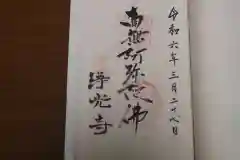 令和六年三月二十八日
南無阿弥陀佛
浄光寺